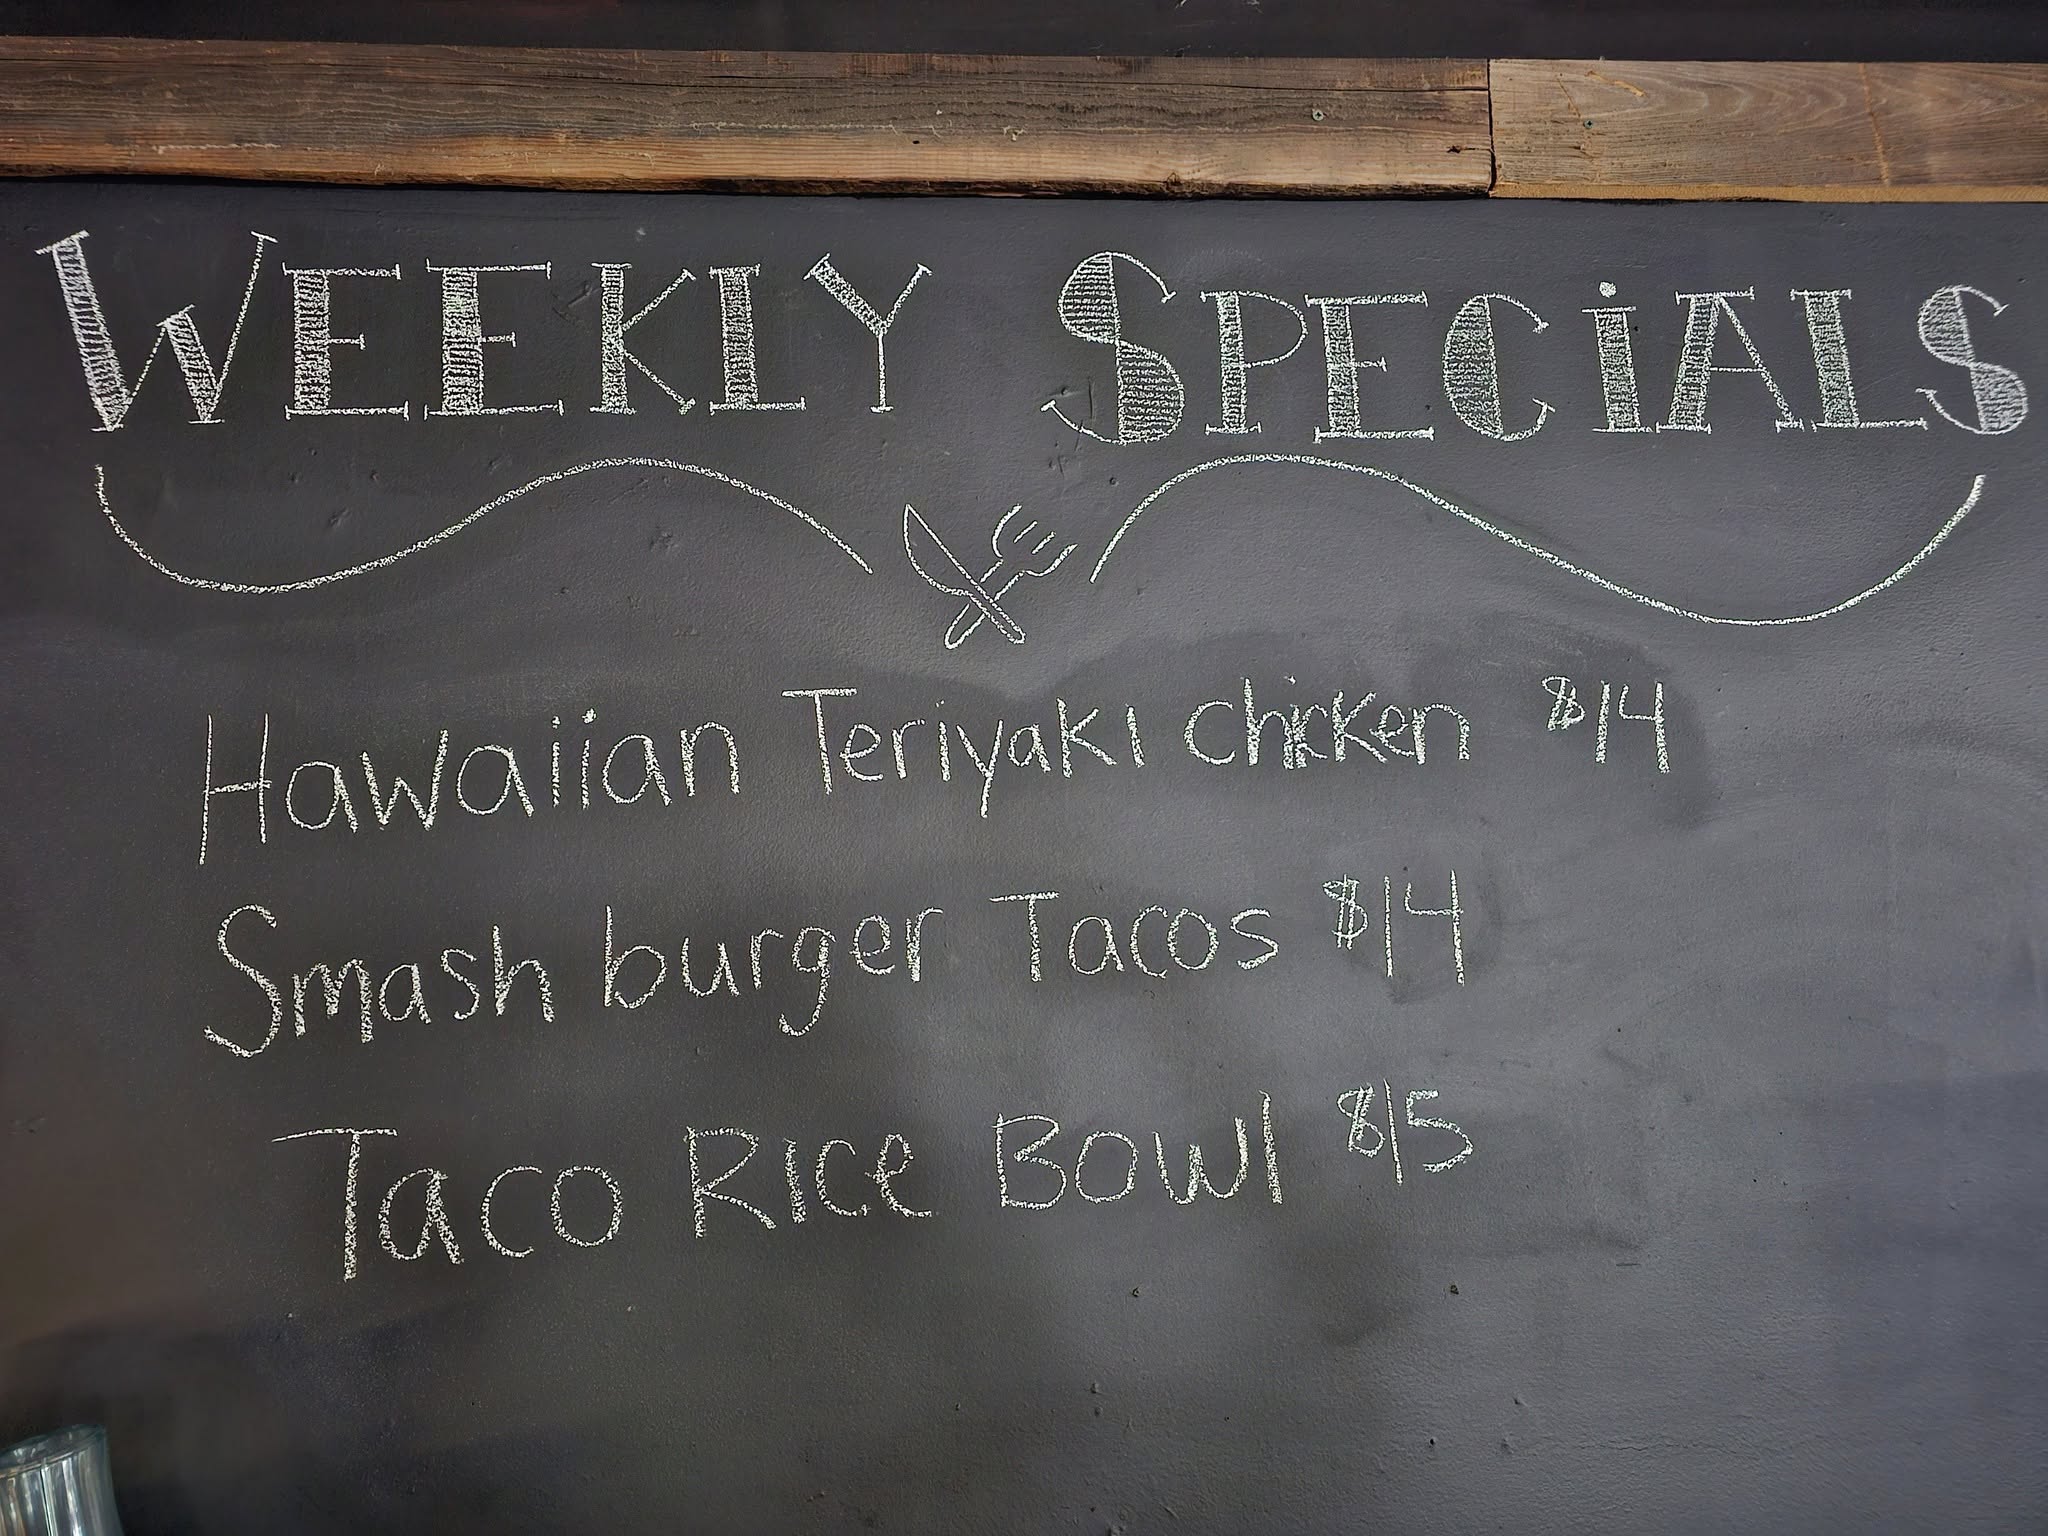 WEEKLY SPECiALS
Hawaiian Teriyaki chicken $14
Smash burger Tacos $14
Taco Rice Bowl $15